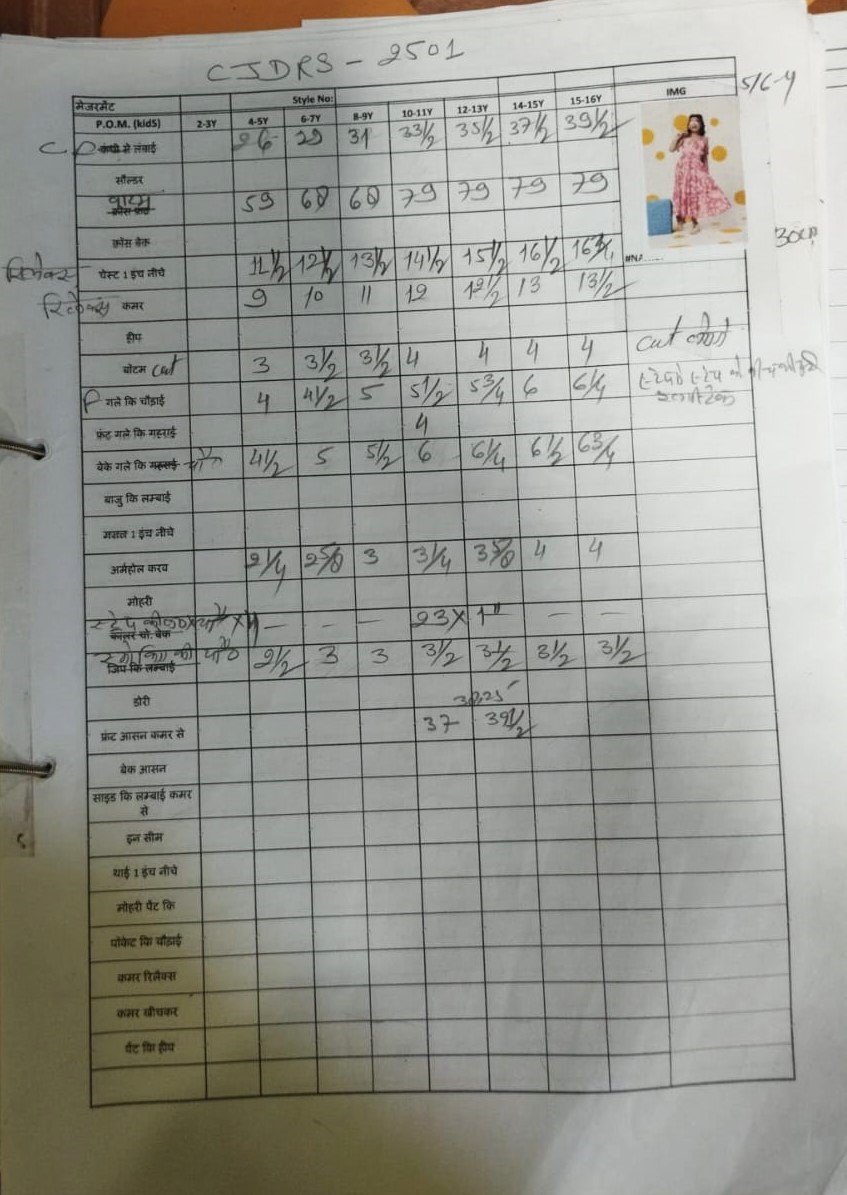 CJDRS - 2501
5/6-4
मेजरमेंट Style No: IMG
P.O.M. (kidS) 2-3Y 4-5Y 6-7Y 8-9Y 10-11Y 12-13Y 14-15Y 15-16Y
कंधी से लंबाई 26 29 31 33 1/2 35 1/2 37 1/2 39 1/2
सौल्डर
59 68 68 79 79 79 79
क्रॉस बेक
रिलेक्स चेस्ट 1 इंच नीचे 11 1/2 12 1/2 13 1/2 14 1/2 15 1/2 16 1/2 16 3/4
#N/.......
रिलेक्स कमर 9 10 11 12 12 1/2 13 13 1/2
हीप
बोटम cut 3 3 1/2 3 1/2 4 4 4 4 cut
P गले कि चौड़ाई 4 4 1/2 5 5 1/2 5 3/4 6 6 1/4
फ्रंट गले कि गहराई 4
बेक गले कि गहराई 4 1/2 5 5 1/2 6 6 1/4 6 1/2 6 3/4
बाजु कि लम्बाई
मसल 1 इंच नीचे
अर्महोल करव 2 1/4 2 5/8 3 3 1/4 3 5/8 4 4
मोहरी
- - - 23 x 1" - -
जिप कि लम्बाई 2 1/2 3 3 3 1/2 3 1/2 3 1/2 3 1/2
डोरी
फ्रंट आसन कमर से 37 39 1/2
बेक आसन
साइड कि लम्बाई कमर
से
इन सीम
थाई 1 इंच नीचे
मोहरी पेंट कि
पॉकेट कि चौड़ाई
कमर रिलैक्स
कमर खीचकर
पेंट कि हीप